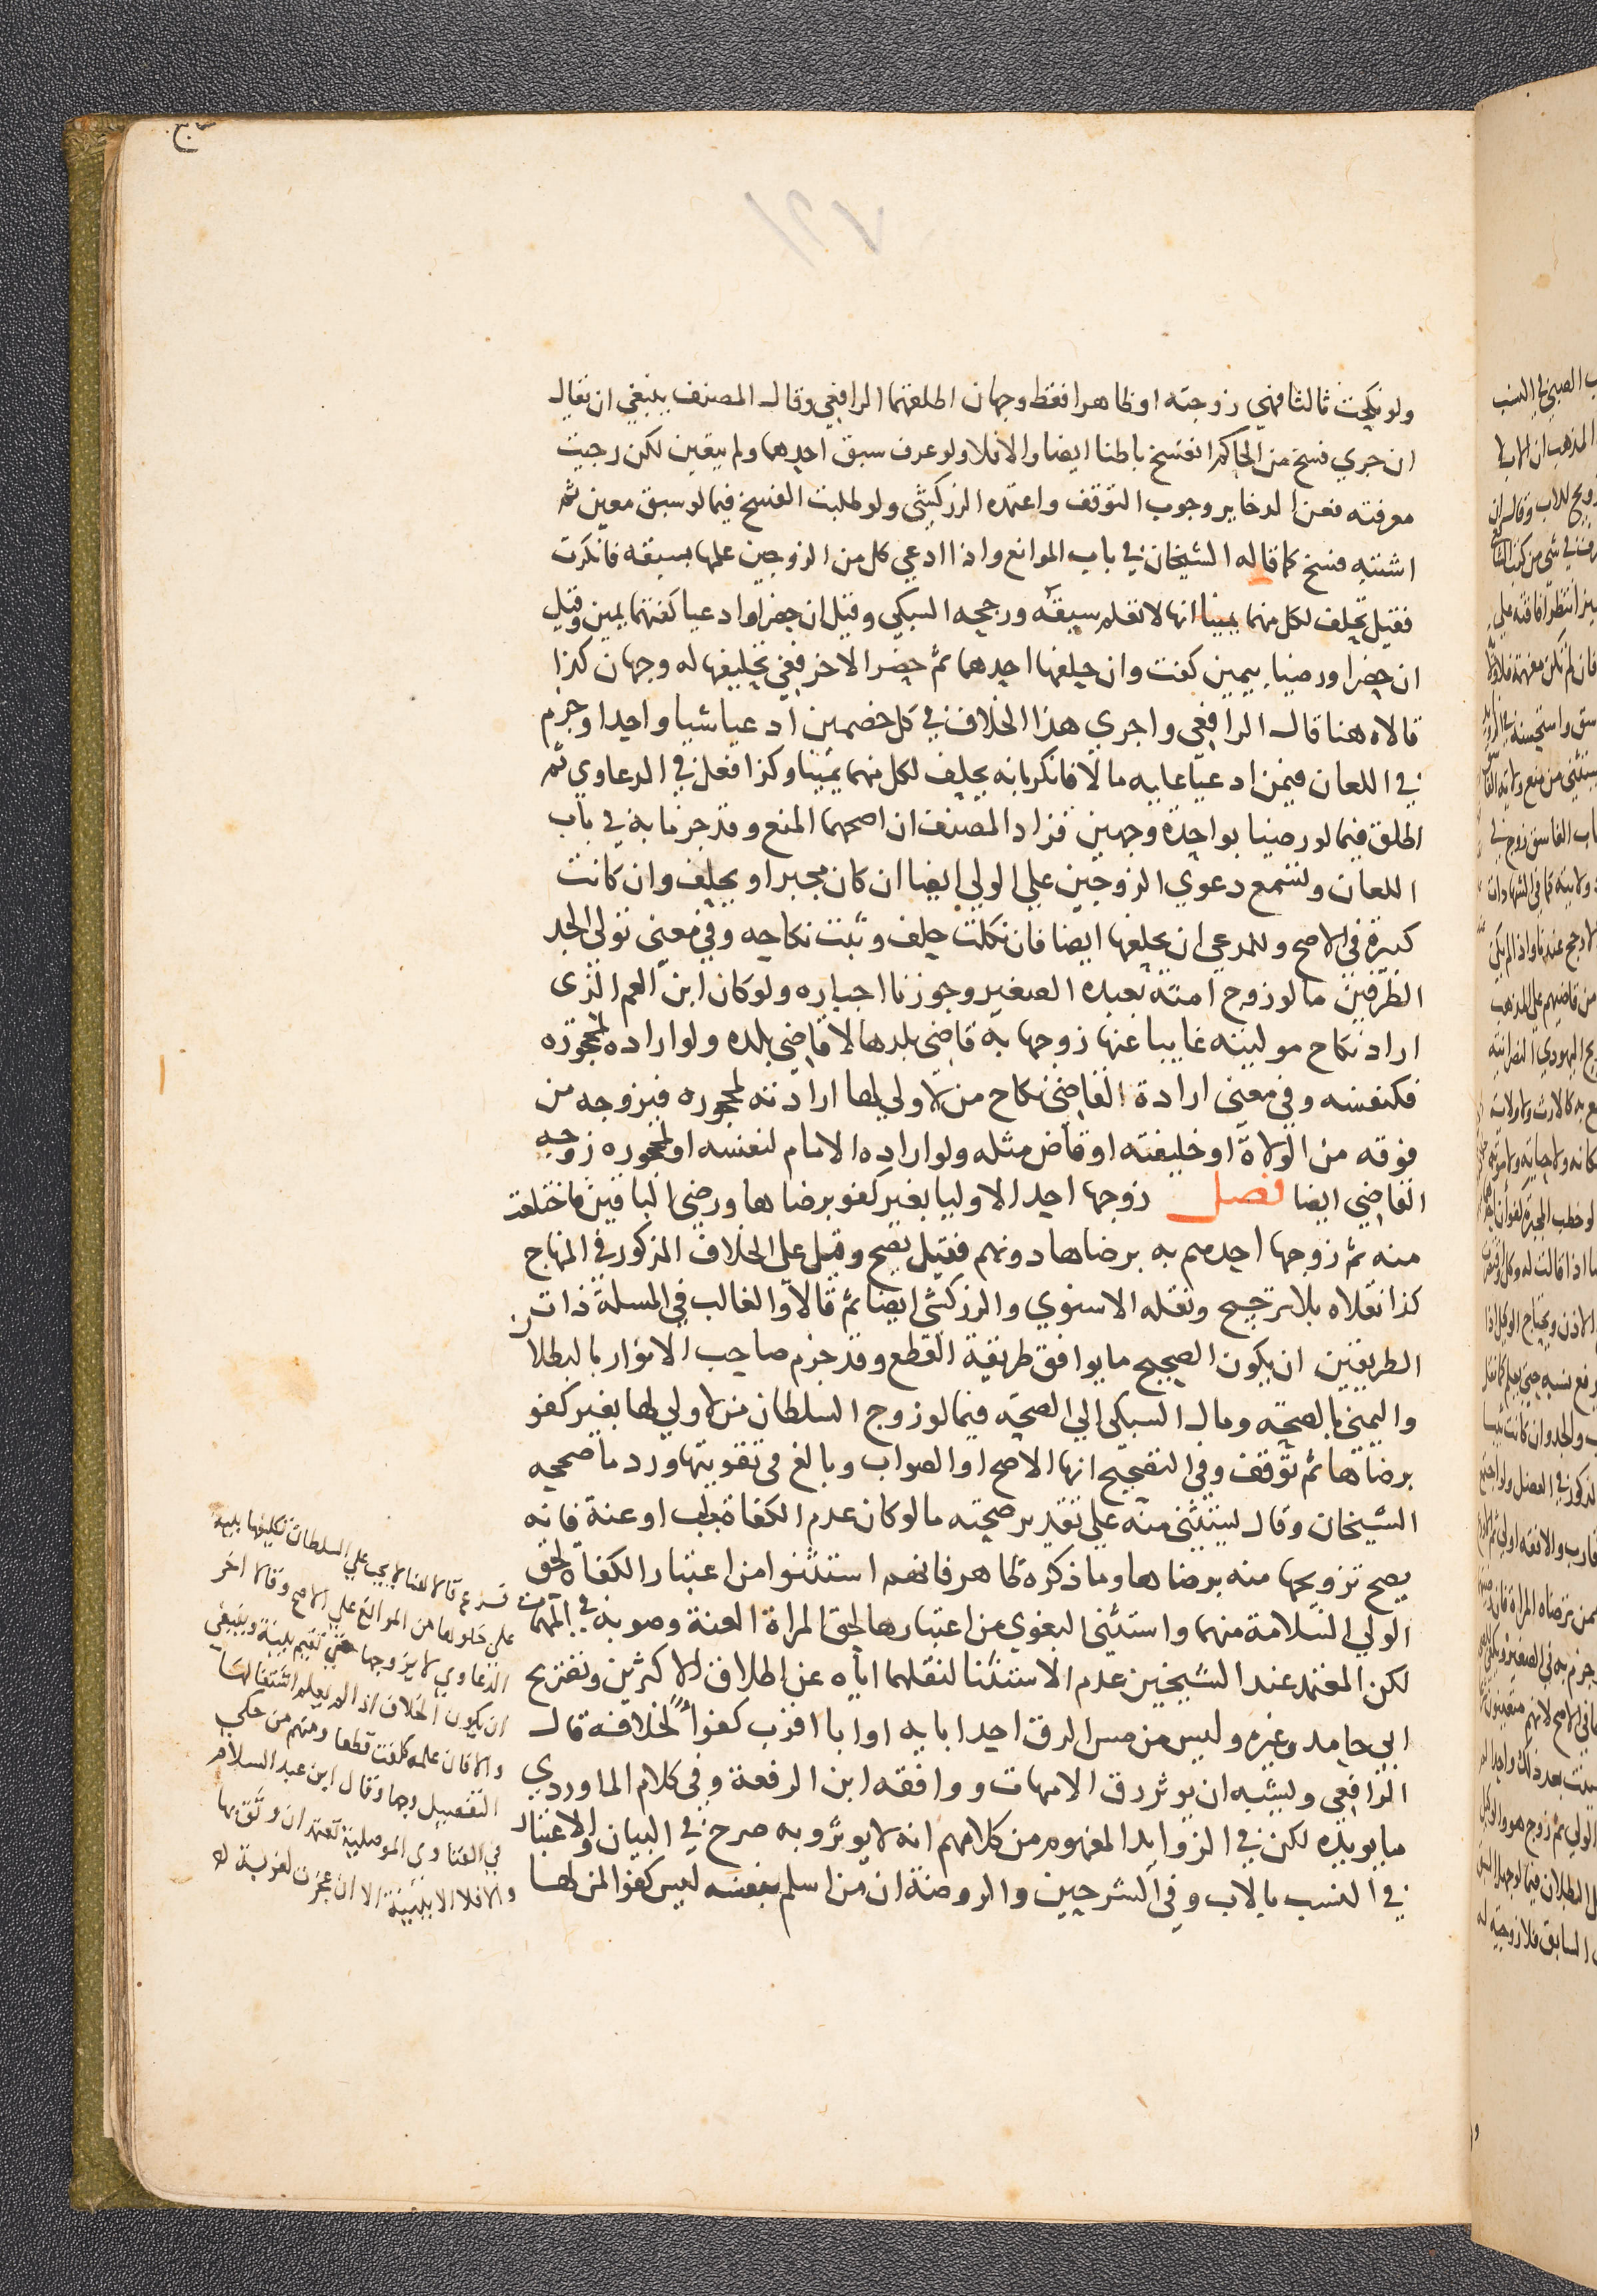 ولو نكحت ثالثا فهي زوجته او ظاهرا فقط وجهان اطلقهما الرافعي وقال المصنف ينبغي ان يقال
ان جري فسخ من الحاكم انفسخ باطنا ايضا والا فلا ولو عرف سبق احدهما ولم يتعين لكن رجيت
معرفته فعن الدخاير وجوب التوقف واعتمده الزركشي ولو طلبت الفسخ فيما لو سبق معين ثم
اشتبه فسخ كما قاله الشيخان في باب الموانع واذا ادعي كل من الزوجين علمها بسبقه فانكرت
فقيل تحلف لكل منهما يمينا انها لا تعلم سبقه ورجحه السبكي وقيل ان حضرا وادعيا كفتهما يمين وقيل
ان حضرا ورضيا بيمين كفت وان حلفها احدهما ثم حضر الاخر ففي تحليفها له وجهان كذا
قالاه هنا قال الرافعي واجري هذا الخلاف في كل خصمين ادعيا شيا واحدا وجزم
في اللعان فيمن ادعيا عليه مالا فانكر بانه يحلف لكل منهما يمينا وكذا فعل في الدعاوي ثم
اطلق فيما لو رضيا بواحدة وجهين فزاد المصنف ان اصحهما المنع وقد جزما به في باب
اللعان وتسمع دعوي الزوجين علي الولي ايضا ان كان مجبرا ويحلف وان كانت
كبيرة في الاصح وللمدعي ان يحلفها ايضا فان نكلت حلف وثبت نكاحه وفي معني تولي الجد
الطرفين ما لو زوج امته بعبده الصغير وجوزنا اجباره ولو كان ابن العم الذي
اراد نكاح موليته غايبا عنها زوجها به قاضي بلدها لا قاضي بلده ولو اراده لمحجوره
فكنفسه وفي معني ارادة القاضي نكاح من لا ولي لها ارادته لمحجوره فيزوجه من
فوقه من الولاة او خليفته او قاض مثله ولو اراده الامام لنفسه او لمحجوره زوجه
القاضي ايضا فصل زوجها احد الاوليا بغير كفو برضاها ورضي الباقين فاختلعت
منه ثم زوجها احدهم به برضاها دونهم فقيل يصح وقيل علي الخلاف المذكور في المنهاج
كذا نقلاه بلا ترجيح ونقله الاسنوي والزركشي ايضا ثم قالا والغالب في المسلة ذات
الطريقين ان يكون الصحيح ما يوافق طريقة القطع وقد جزم صاحب الانوار بالبطلان
واليمني بالصحة ومال السبكي الي الصحة فيما لو زوج السلطان من لا ولي لها بغير كفو
برضاها ثم توقف وفي التصحيح انها الاصح او الصواب وبالغ في تقويتها ورد ما صححه
الشيخان وقال يستثني منه علي تقدير صحته ما لو كان عدم الكفاة بجب او عنة فانه
يصح تزويجها منه برضاها وما ذكره ظاهر فانهم استثنوا من اعتبار الكفاة لحق
الولي السلامة منهما واستثني البغوي من اعتبارها لحق المراة العنة وصوبه في المهمات
لكن المعتمد عند الشيخين عدم الاستثنا لنقلهما اياه عن اطلاق الاكثرين وتصريح
ابي حامد وغيره وليس من مس الرق احد ابايه او ابا اقرب كفوا لخلافه قال
الرافعي ويشبه ان يوثر رق الامهات ووافقه ابن الرفعة وفي كلام الماوردي
ما يويده لكن في الزوايد المفهوم من كلامهم انه لا يوثر وبه صرح في البيان والاعتبار
في النسب بالاب وفي الشرحين والروضة ان من اسلم بنفسه ليس كفوا لمن لها
فرع قالا هنا لا يجب علي السلطان تكليفها بينة
علي خلوها من الموانع علي الاصح وقالا اخر
الدعاوي لا يزوجها حتي تقيم بينة وينبغي
ان يكون الخلاف اذا لم يعلم اشتغالها
والا فان علمه كلفت قطعا ومنهم من حكي
التفصيل وجها وقال ابن عبد السلام
في الفتاوي الموصلية تعتد ان وثق بها
والا فلا الا ببينة الا ان عجزت لغربة